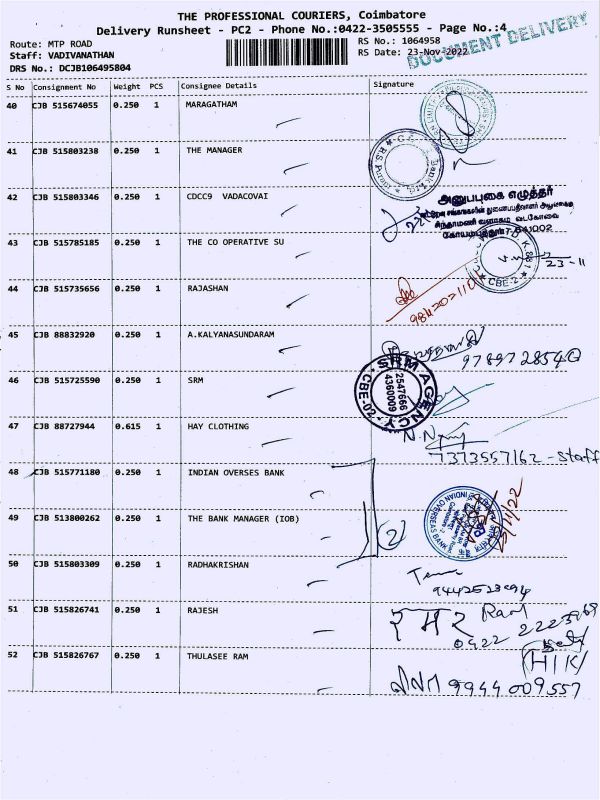 THE PROFESSIONAL COURIERS, Coimbatore
Delivery Runsheet - PC2 - Phone No.:0422-3505555 - Page No.:4
Route: MTP ROAD
Staff: VADIVANATHAN
DRS No.: DCJB106495804
RS No.: 1064958
RS Date: 23-Nov-2022
DOCUMENT DELIVERY
S No Consignment No Weight PCS Consignee Details Signature
40 CJB 515674055 0.250 1 MARAGATHAM
41 CJB 515803238 0.250 1 THE MANAGER
42 CJB 515803346 0.250 1 CDCC9 VADACOVAI
அனுப்புகை எழுத்தர்
சிந்தாமணி வளாகம் வடகோவை
641002
43 CJB 515785185 0.250 1 THE CO OPERATIVE SU
CBE-2
23-11
44 CJB 515735656 0.250 1 RAJASHAN
45 CJB 88832920 0.250 1 A.KALYANASUNDARAM
9789728540
46 CJB 515725590 0.250 1 SRM
SRM AGENCY
CBE-02
2547666
4360009
47 CJB 88727944 0.615 1 HAY CLOTHING
7373557162 - Staff
48 CJB 515771180 0.250 1 INDIAN OVERSES BANK
49 CJB 513800262 0.250 1 THE BANK MANAGER (IOB)
2
INDIAN OVERSEAS BANK
50 CJB 515803309 0.250 1 RADHAKRISHAN
51 CJB 515826741 0.250 1 RAJESH
Ram
0422
52 CJB 515826767 0.250 1 THULASEE RAM
9944009557